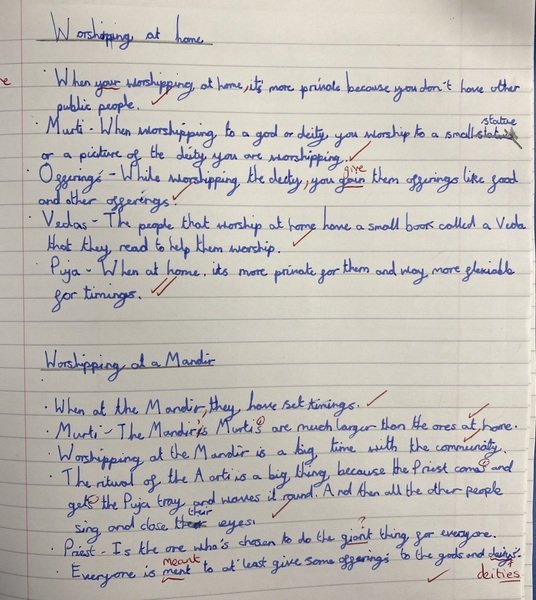 Worshipping at home
· When your worshipping, at home, it's more private because you don't have other
public people.
· Murti - When worshipping to a god or deity, you worship to a small statue
or a picture of the deity you are worshipping.
· Offerings - While worshipping the deity, you give them offerings like food
and other offerings.
· Vedas - The people that worship at home have a small book called a Veda
that they, read to help them worship.
· Puja - When at home, its more private for them and way more flexiable
for timings.
Worshipping at a Mandir
· When at the Mandir, they have set timings.
· Murti - The Mandir's Murtis are much larger than the ones at home.
· Worshipping at the Mandir is a big time with the community.
The ritual of the Aarti is a big thing because the Priest comes and
gets the Puja tray and waves it round. And then all the other people
sing and close their eyes.
· Priest - Is the one who's chosen to do the giant thing for everyone.
?
· Everyone is meant to at least give some offerings to the gods and
deities